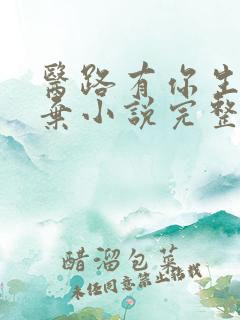 醫路有你生
棄小說完整
醋溜包菜
未经同意禁止转载